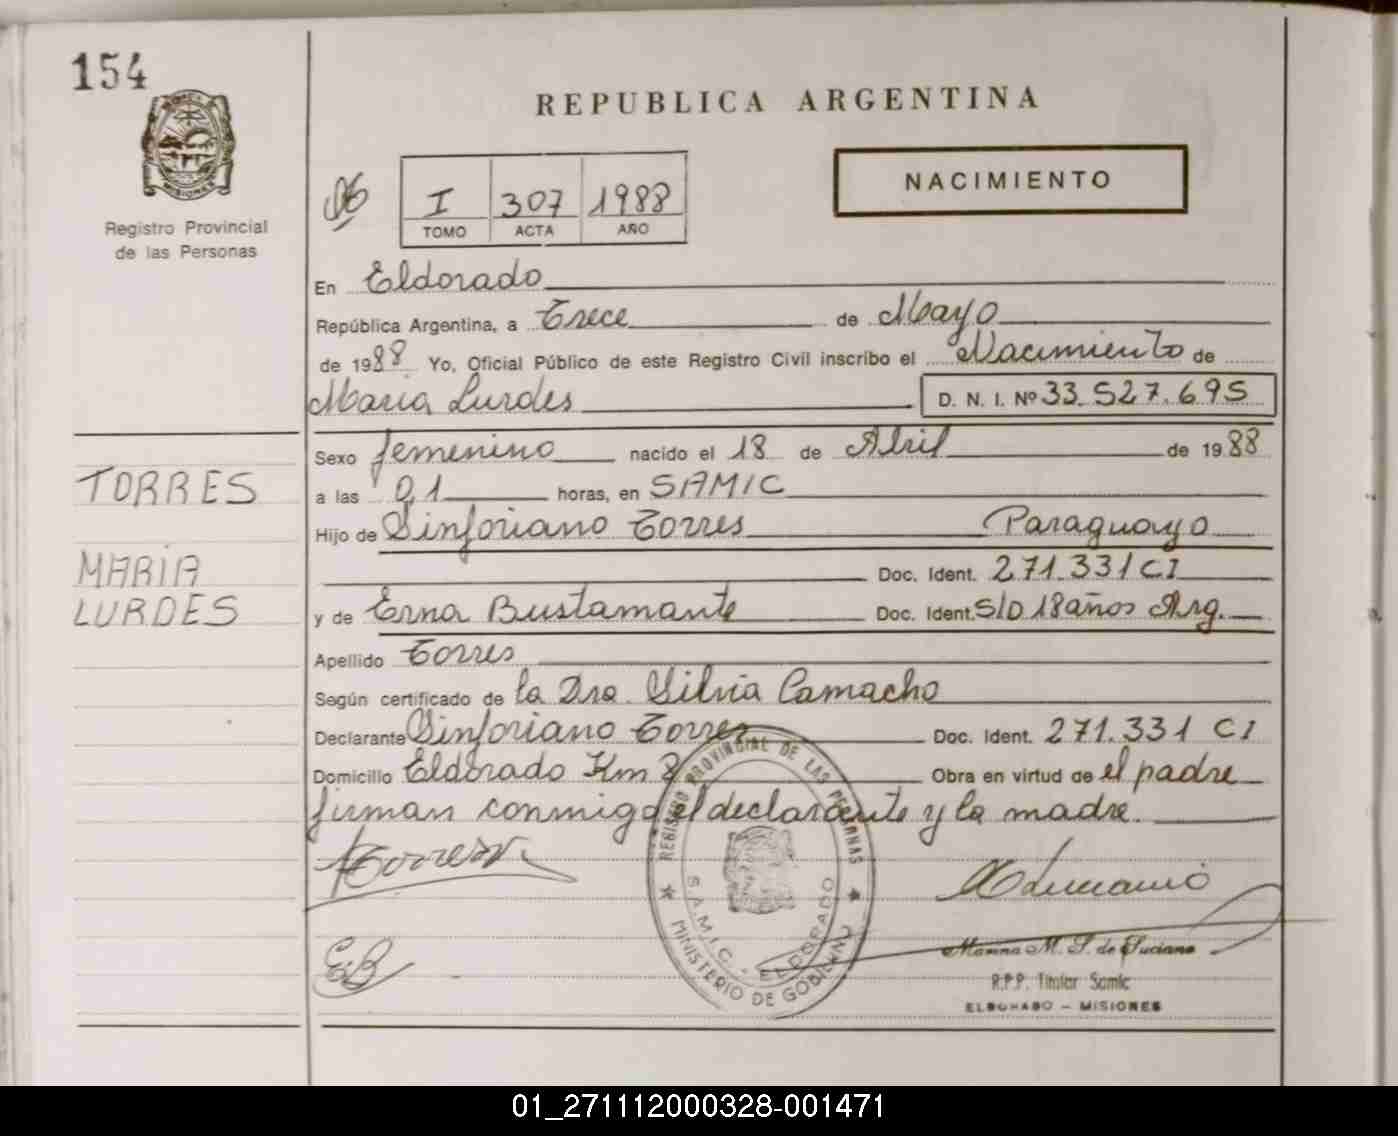 154
REPUBLICA ARGENTINA
MISIONES
Registro Provincial
de las Personas
I 307 1988
TOMO ACTA AÑO
NACIMIENTO
En Eldorado
República Argentina, a Trece de Mayo
de 1988 Yo, Oficial Público de este Registro Civil inscribo el Nacimiento de
Maria Lurdes D. N. I. Nº 33.527.695
Sexo femenino nacido el 18 de Abril de 1988
TORRES
a las 01 horas, en SAMIC
Hijo de Sinforiano Torres Paraguayo
MARIA
Doc. Ident. 271.331 CI
LURDES
y de Erna Bustamante Doc. Ident. S/D 18 años Arg.
Apellido Torres
Según certificado de la Dra. Silvia Camacho
Declarante Sinforiano Torres Doc. Ident. 271.331 CI
Domicilio Eldorado Km 8 Obra en virtud de el padre
firman conmigo el declarante y la madre.
REGISTRO PROVINCIAL DE LAS PERSONAS
S.A.M.I.C. - ELDORADO
MINISTERIO DE GOBIERNO
EB
Marina M. S. de Luciano
R.P.P. Titular Samic
ELDORADO - MISIONES
01_271112000328-001471